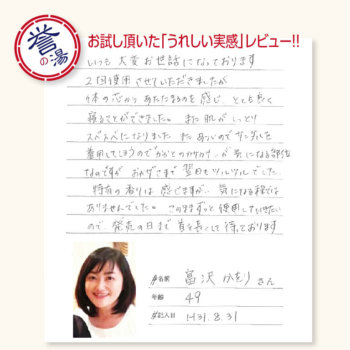 誉の湯
お試し頂いた「うれしい実感」レビュー!!
いつも大変お世話になっております
2回使用させていただきましたが
体の芯からあたたまるのを感じ、とても良く
寝ることができました。また肌がしっとり
スベスベになりました。またあついのでサンダルを
着用してしまうのでかかとのカサカサが気になる部位
なのですがおかげさまで翌日もツルツルでした。
特有の香りは感じますが、気になる程では
ありませんでした。このままずっと使用していきたい
ので、発売の日まで首を長くして待っております
お名前 富沢かをりさん
年齢 49
ご記入日 H31.8.31